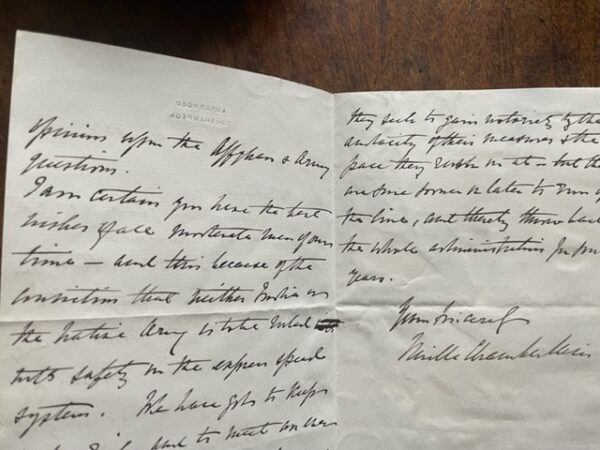 opinions upon the Affghan & Army
questions.
I am certain you have the best
wishes of all moderate men of our
time — and this because of the
conviction that neither India nor
the Native Army is to be ruled
with safety on the express speed
system. We have got to keep
and to meet an
they seek to gain notoriety by the
audacity of their measures & the
pace they rush in at – but the
are sure sooner or later to run off
the line, and thereby throw back
the whole administration for
years.
Yours Sincerely
Neville Chamberlain